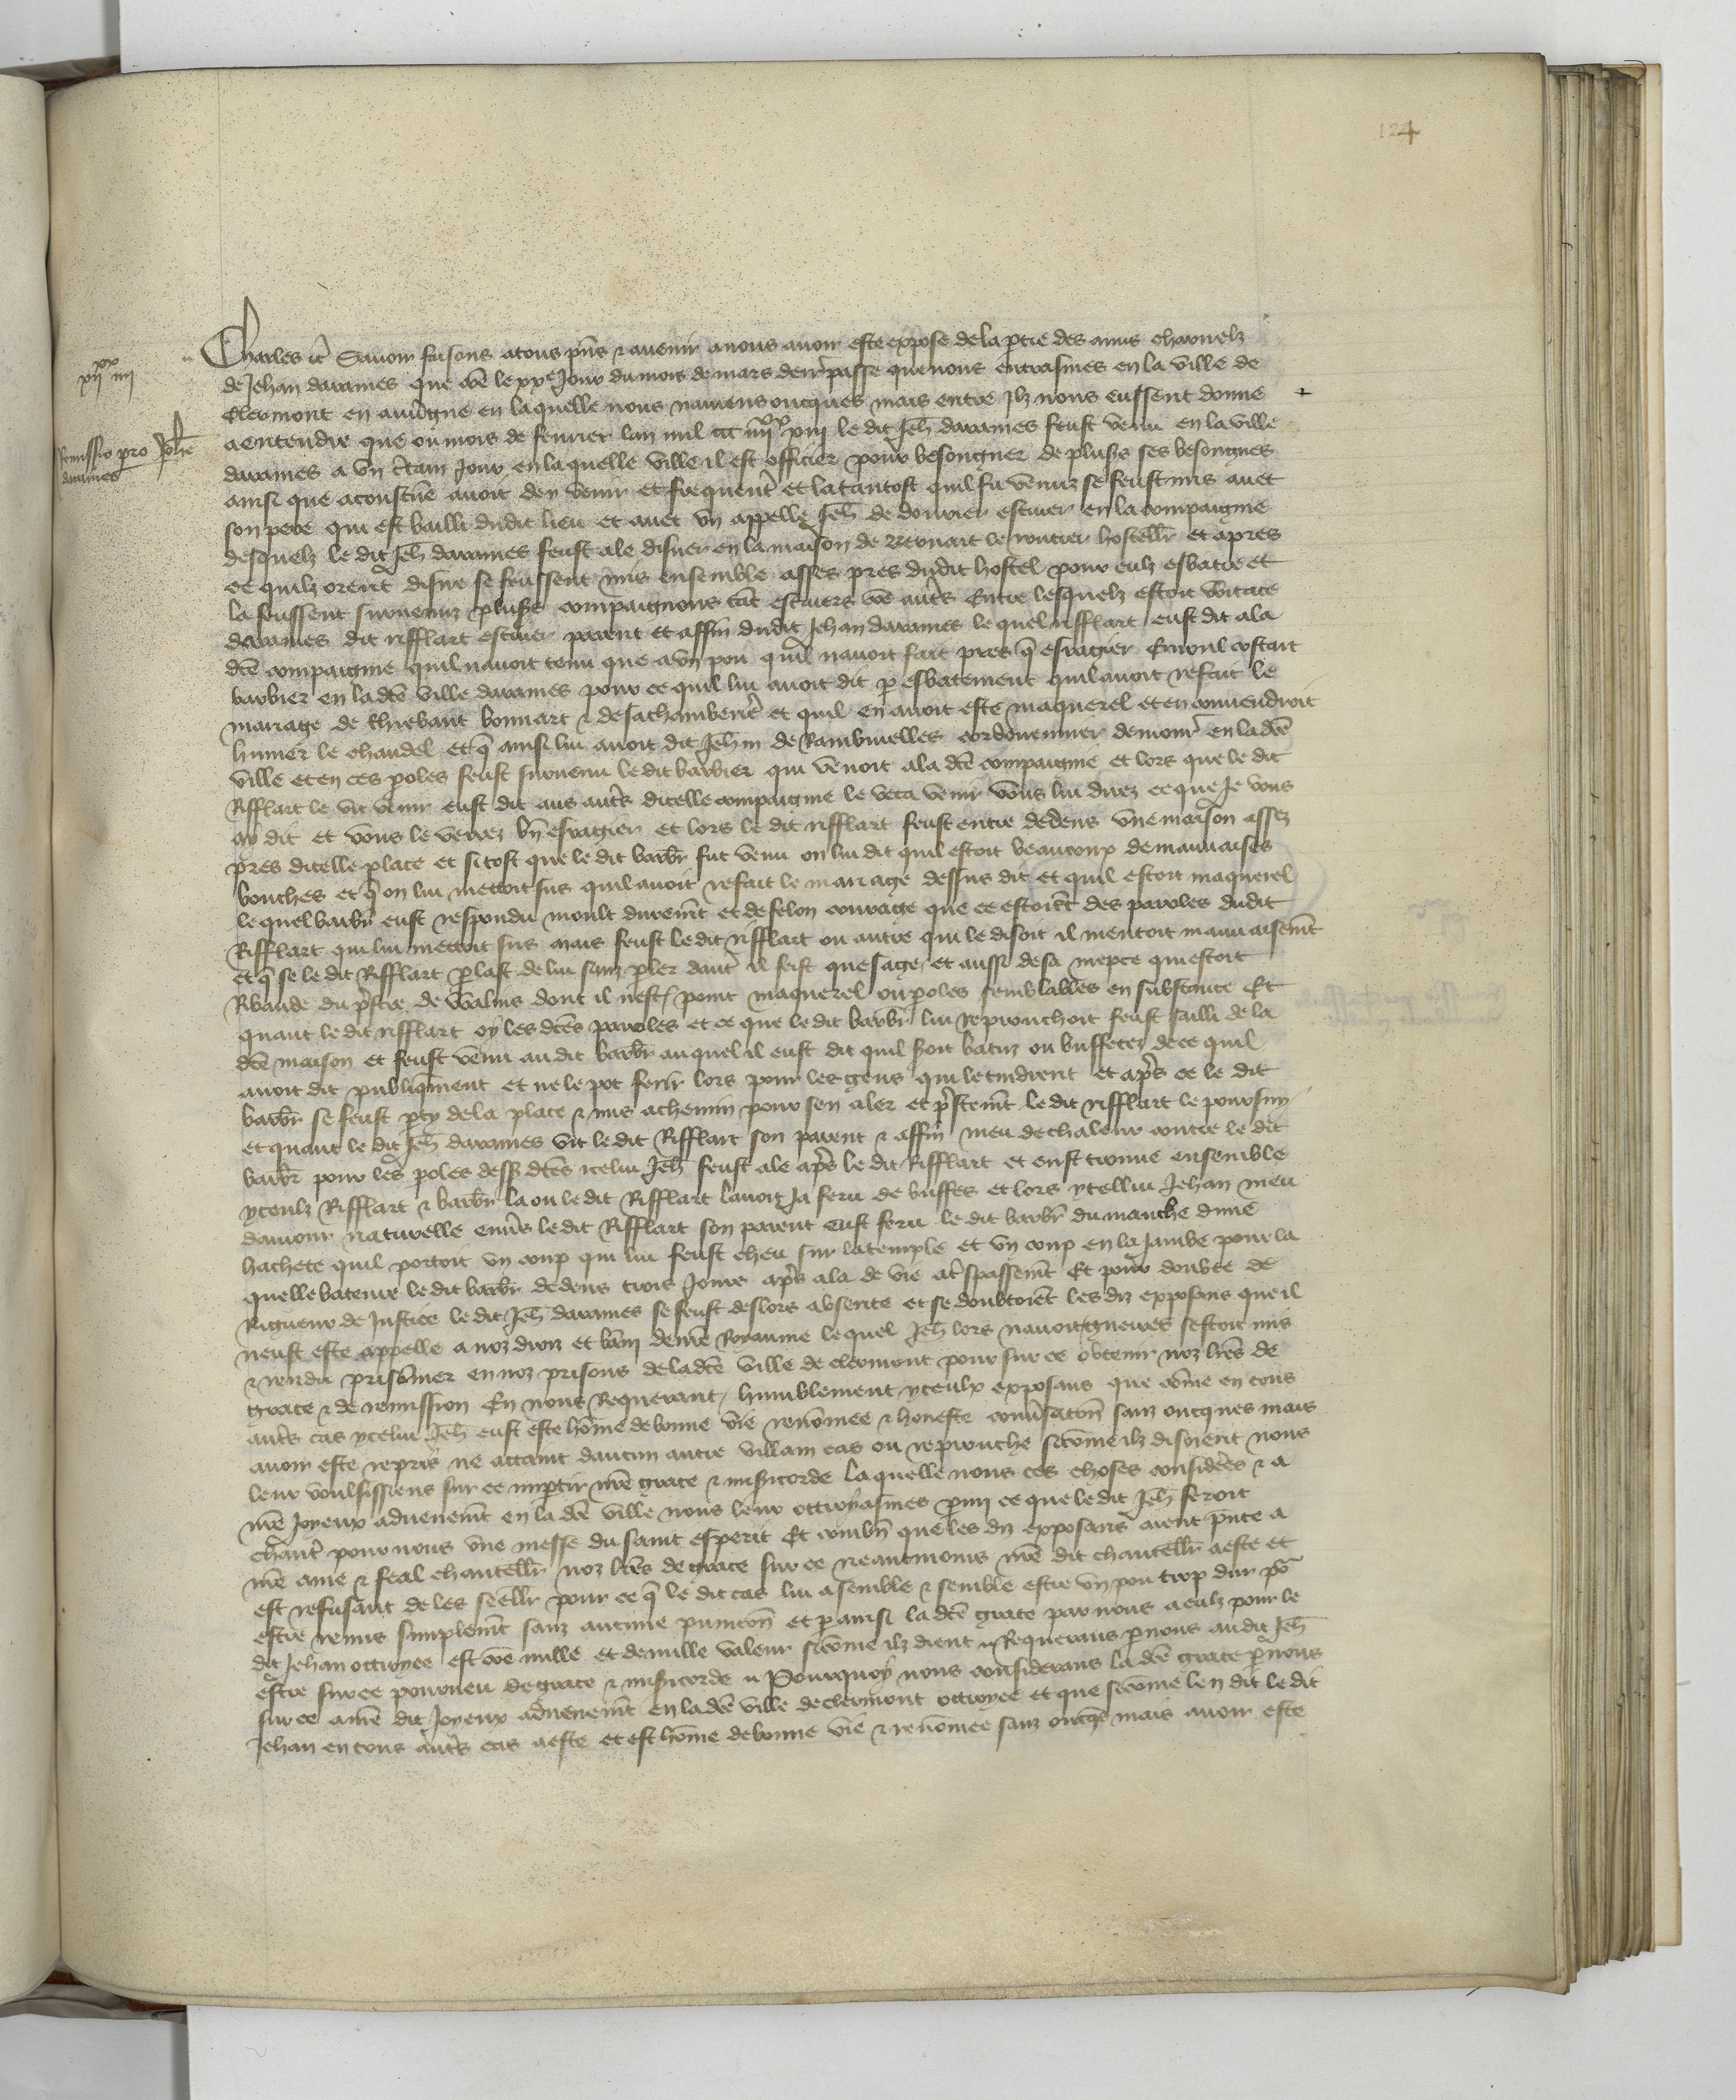 124
xii xx iiii
Remissio pro Johe
darames
Charles etc Savoir faisons a tous pns & avenir a nous avoir este expose de la ptie des amis charnelz
de Jehan darames que coe le xxe Jour du mois de mars derr passe que nous entrasmes en la ville de
Clermont en auvgne en laquelle nous naviens oncques mais entre Ilz nous eussent donne
a entendre que ou mois de fevrier lan mil ccc iiiixx xiii le dit Jeh darames feust venu en la ville
darames a un ctain Jour en laquelle ville il est officier pour besongner de pluss ses besongnes
ainsi que acoustue avoit dey venir et frequentr et la tantost quil fu venuz se feust mis avec
son pere qui est bailli dudit lieu et avec un appelle Jeh de douvrier escuier en la compaignie
desquelz le dit Jeh darames feust ale disner en la maison de Revnart le routier hostellr et apres
ce quilz orent disne se feussent mis ensemble asses pres dudit hostel pour eulz esbatre et
la feussent survenuz pluss compaignons tat escuiers coe autrs Entre lesquelz estoit witace
darames dit rifflart escuier parent et affin dudit Jehan darames le quel rifflart eust dit a la
dte compaignie quil navoit tenu que a un pou quil navoit fait pres q esragier Ernoul costart
barbier en la dte ville darames pour ce quil lui avoit dit p esbatement quil avoit refait le
mariage de thiebaut bonnart & de sa chamberier et quil en avoit este maquerel et en convendroit
humer le chaudel et q ainsi lui avoit dit Jehin de Rambuvelles cordouennier demour en la dte
ville et en ces poles feust survenu le dit barbier qui venoit a la dte compaignie et lors que le dit
Rifflart le vit venir eust dit aus autrs dicelle compaignie le veca venir vous lui direz ce que Je vous
ay dit et vous le verrez bn esragier et lors le dit rifflart feust entre dedens une maison assez
pres dicelle place et si tost que le dit barbr fut venu on lui dit quil estoit beaucoup de mauvaises
bouches et q on lui mettoit sus quil avoit refait le mariage dessus dit et quil estoit maquerel
le quel barbr eust respondu moult duremt et de felon courage que ce estoient des paroles dudit
Rifflart qui lui mettoit sus mais feust le dit rifflart ou autre qui le disoit il mentoit mauvaisemt
et q se le dit Rifflart plast de lui sanz pler dautr il feist que sage et aussi de sa niepce qui estoit
Ribaude du pstre de walins dont il nest point maquerel ou poles semblables en substance Et
quant le dit rifflart oy les dtes paroles et ce que le dit barbr lui reprouchoit feust sailli de la
dte maison et feust venu au dit barbr auquel il eust dit quil soit batuz ou buffetez de ce quil
avoit dit publiqment et ne le pot ferir lors pour les gens qui le tindrent et aprs ce le dit
barbr se feust pty de la place & mis a chemin pour sen aler et pstemt le dit rifflart le poursuy
et quant le dit Jeh darames vit le dit Rifflart son parent & affin meu de chaleur contre le dit
barbr pour les poles dess dtes icelui Jeh feust ale aprs le dit Rifflart et eust trouve ensemble
yceulz Rifflart & barbr la ou le dit Rifflart lavoit Ja feru de buffes et lors ycellui Jehan meu
damour naturelle envrs le dit Rifflart son parent eust feru le dit barbr du manche dune
hachete quil portoit un coup qui lui feust cheu sur la temple et un coup en la Jambe pour la
quelle bateure le dit barbr dedens trois Jours aprs ala de vie a trspassemt Et pour doubte de
Rigueur de Justice le dit Jeh darames se feust deslors absente et se doubtoient les diz exposans que il
neust este appelle a noz droiz et bani de nre Royaume lequel Jeh lors navoit gueires sestoit mis
& rendu prisonier en noz prisons de la dte ville de clermont pour sur ce obtenir noz lres de
grace & de remission En nous Requerant humblement yceulx exposans que come en tous
autrs cas ycelui Jeh eust este home de bonne vie renomee & honeste convsacon sanz oncques mais
avoir este repris ne attaint daucun autre villain cas ou reprouche sicome ilz disoient nous
leur voulsissiens sur ce imptir nre grace & misicorde laquelle nous ces choses considrees & a
nre Joyeux advenemt en la dte ville nous leur ottroyasmes pmi ce que le dit Jeh feroit
chantr pour nous une messe du saint esperit Et combn que les diz exposans aient pnte a
nre ame & feal chancellr noz lres de grace sur ce neantmoins nre dit chancellr a este et
est refusant de les seellr pour ce q le dit cas lui a semble & semble estre un pou trop dur por
estre remis simplemt sanz aucune punicon et p ainsi la dte grace par nous a eulz pour le
dit Jehan ottroyee est coe nulle et de nulle valeur sicome ilz dient Requerans p nous audit Jeh
estre sur ce pourveu de grace & misicorde Pourquoy nous considerans la dte grace p nous
sur ce a nre dit Joyeux advenemt en la dte ville de clermont ottroyee et que sicome len dit le dit
Jehan en tous autrs cas a este et est home de bonne vie & renomee sanz oncqs mais avoir este